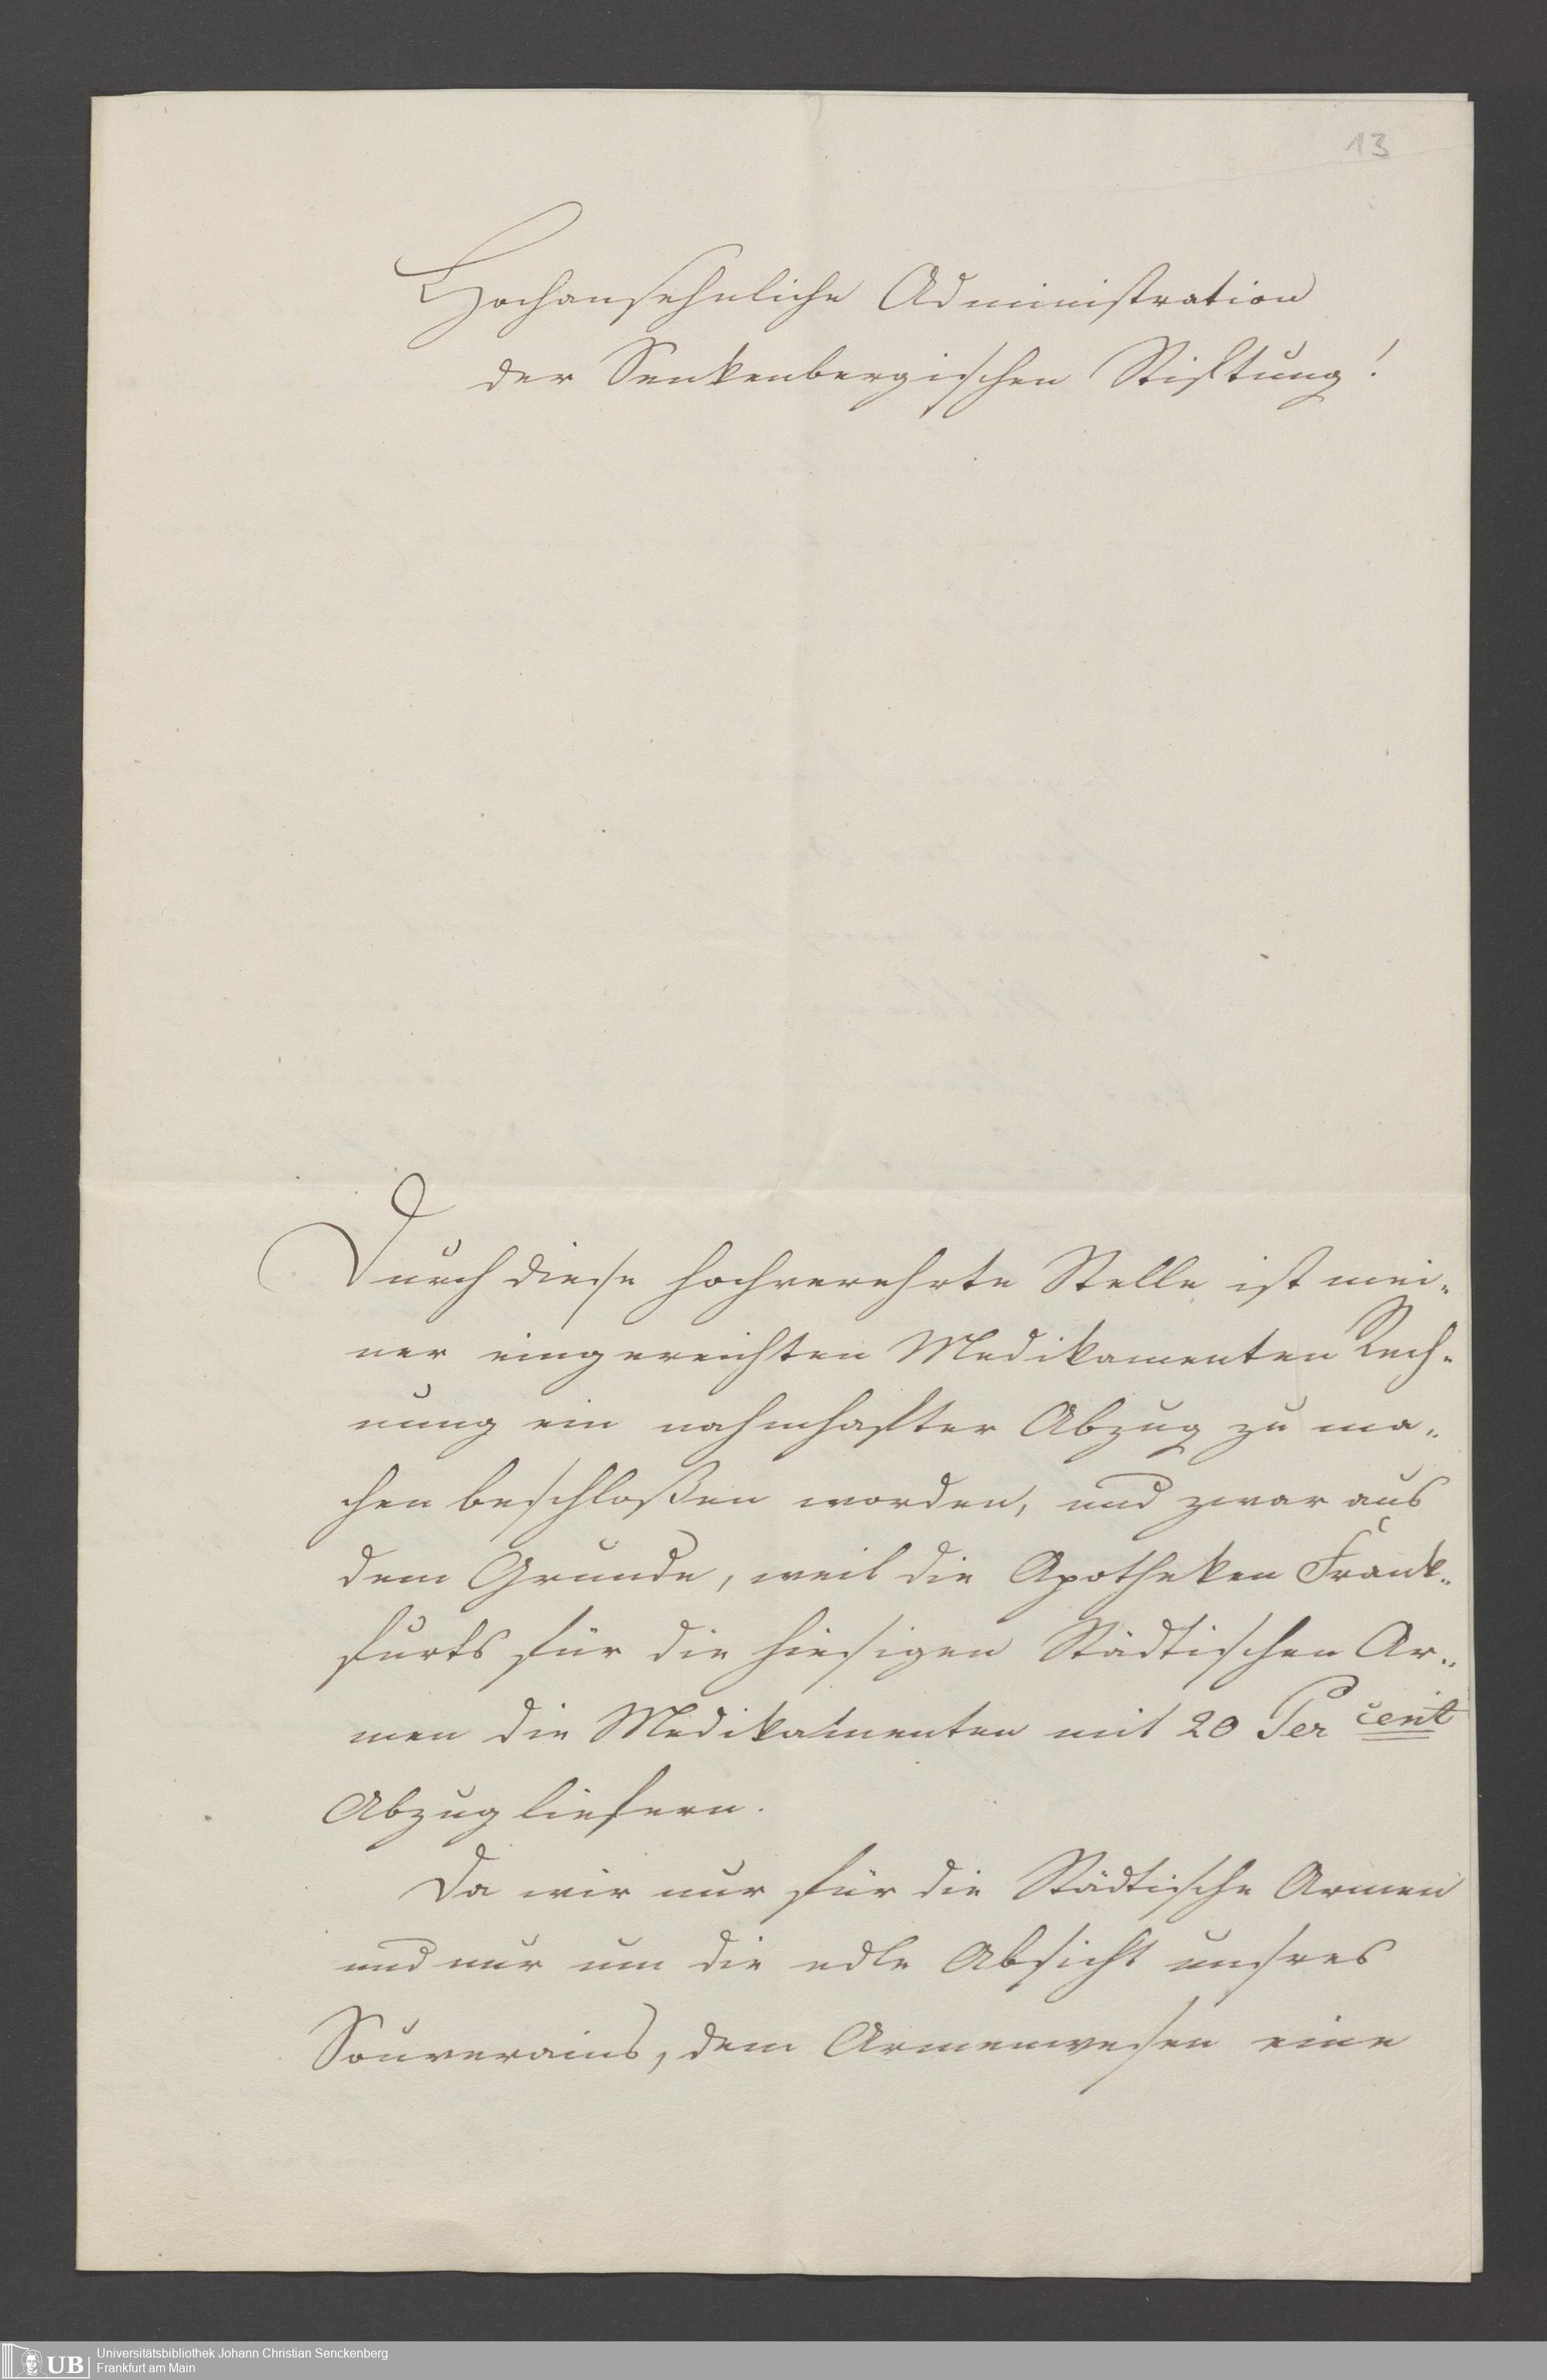 13
Hochansehnliche Administration
der Senkenbergischen Stiftung!
Durch diese hochverehrte Stelle ist mei-
ner eingereichten Medikamenten Rech-
nung ein nahmhafter Abzug zu ma-
chen beschloßen worden, und zwar aus
dem Grunde, weil die Apotheken Frank-
furts für die hiesigen Städtischen Ar-
men die Medikamenten mit 20 Per cent
Abzug liefern.
Da wir nur für die Städtische Armen
und nur um die edle Absicht unsres
Souverains, dem Armenwesen eine
UB
Universitätsbibliothek Johann Christian Senckenberg
Frankfurt am Main